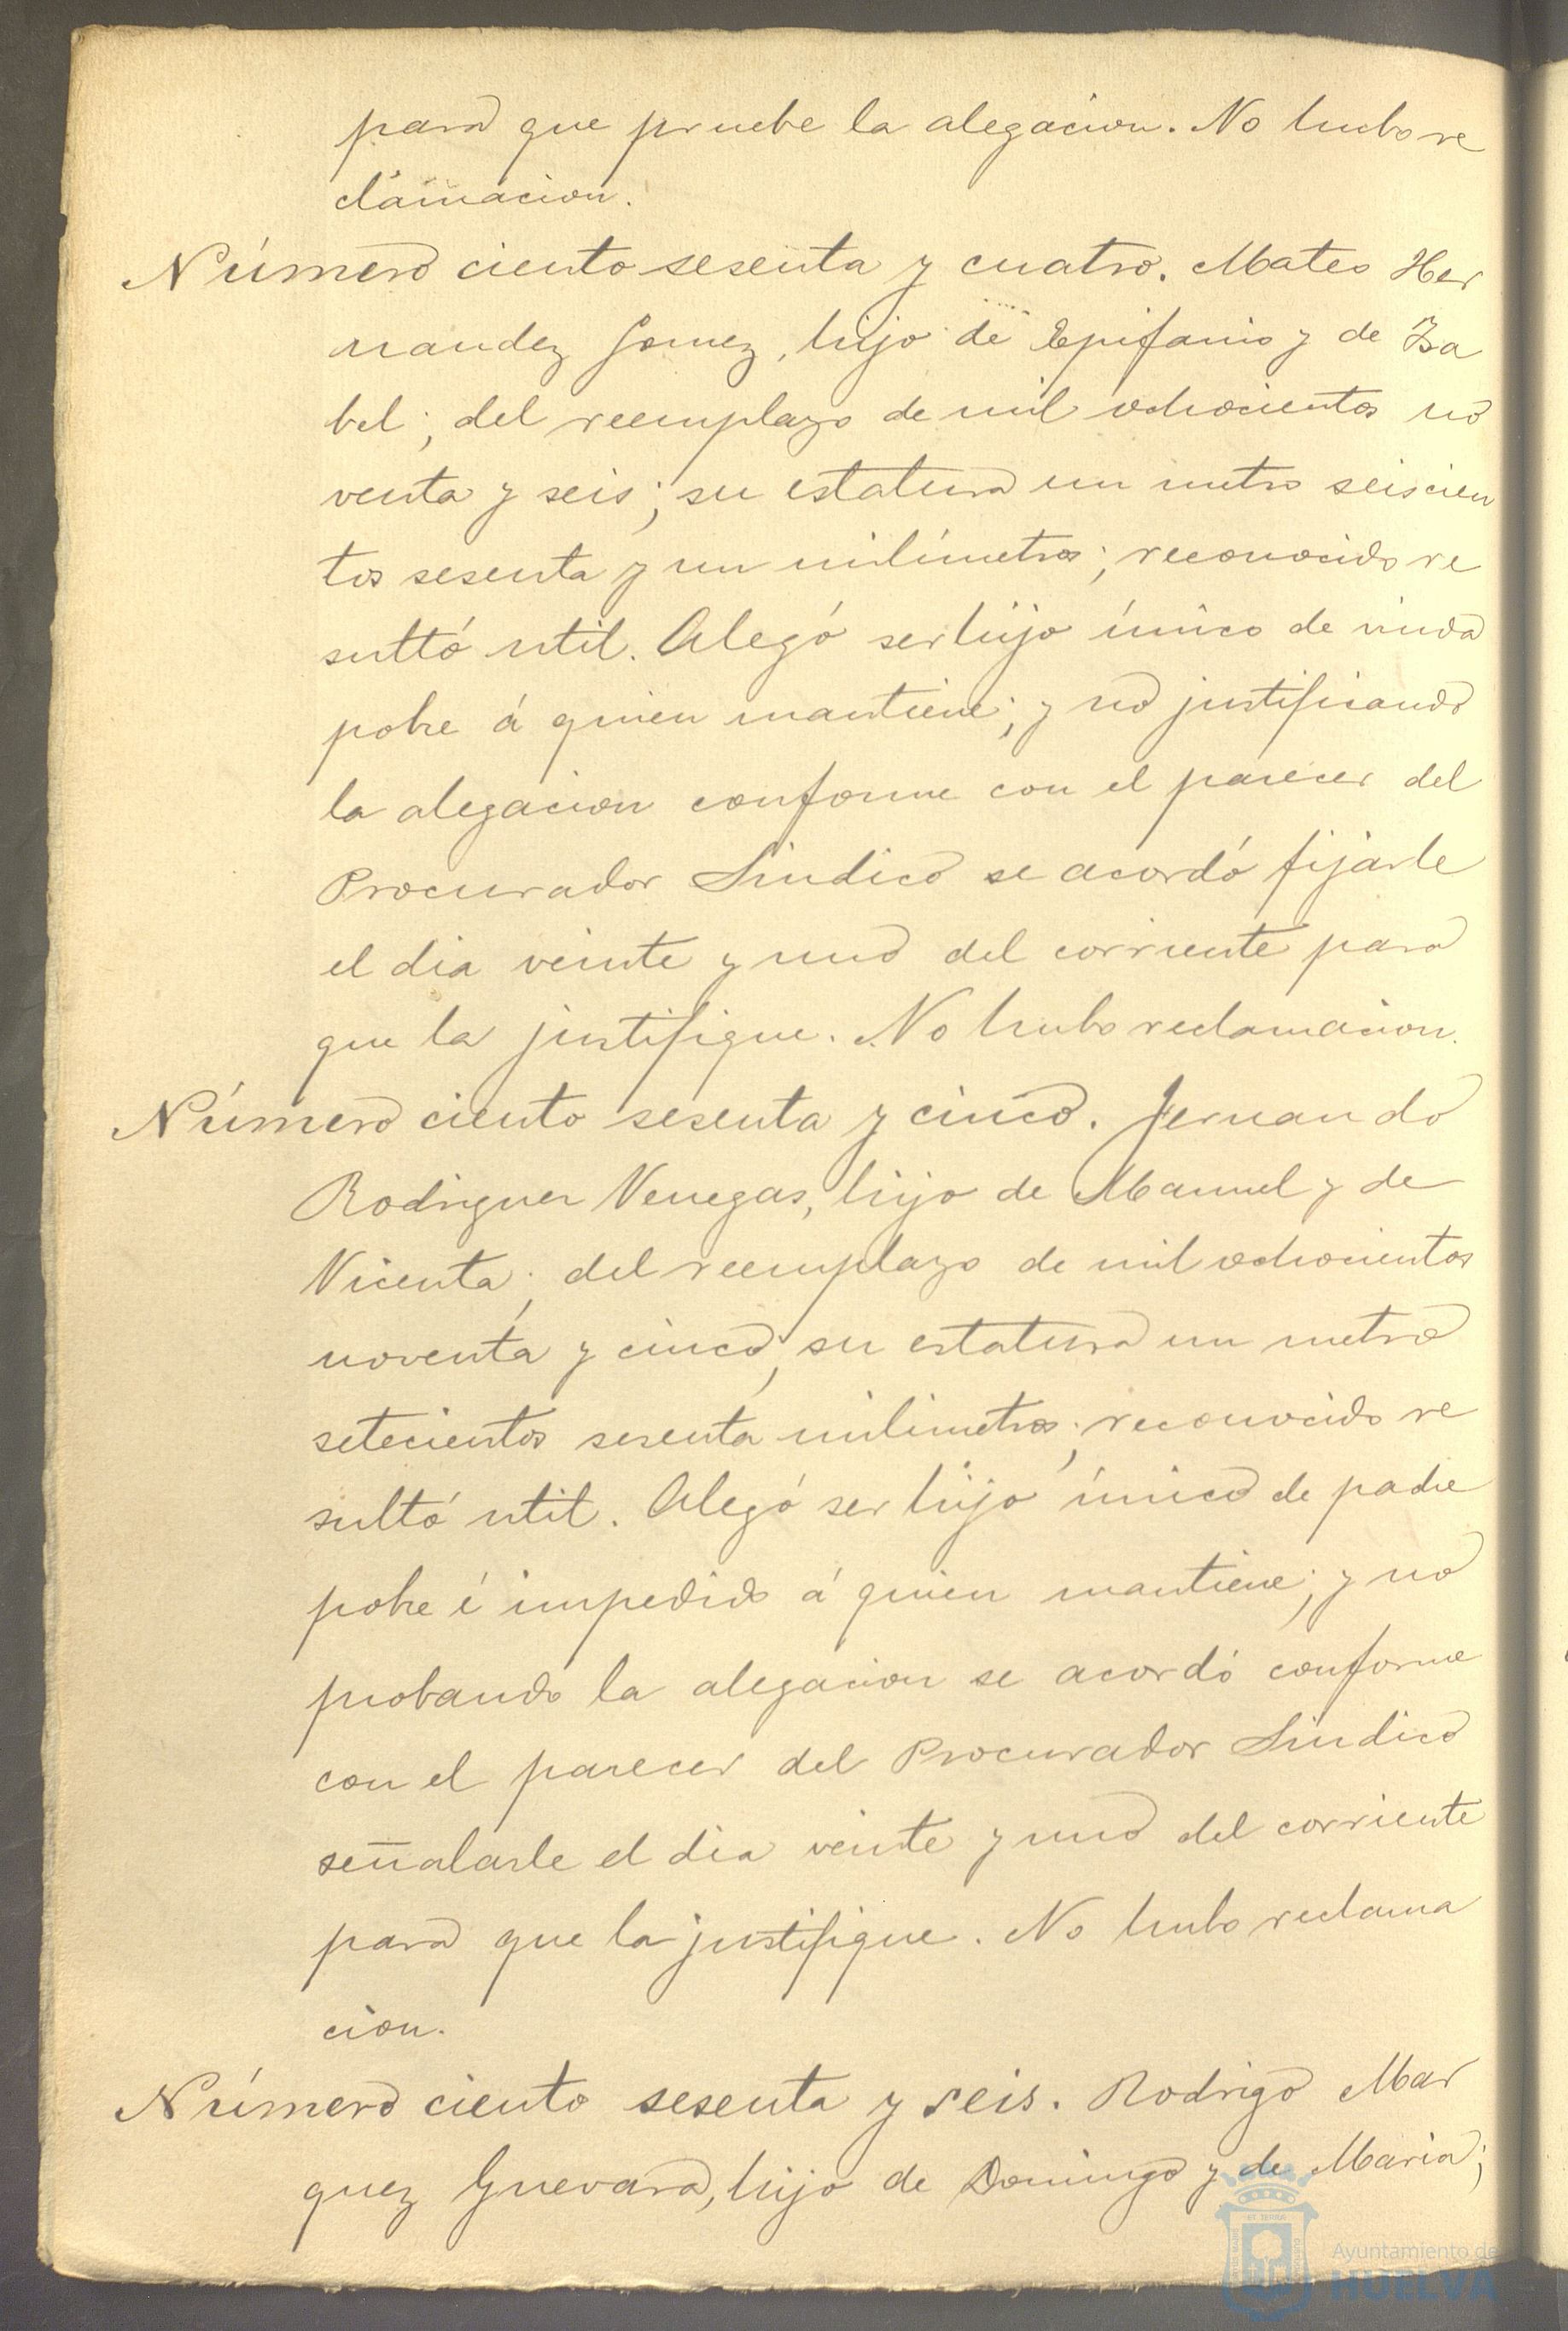 para que pruebe la alegacion. No hubo re
clamacion.
Número ciento sesenta y cuatro. Mateo Her
nandez Gomez, hijo de Epifanio y de Isa
bel; del reemplazo de mil ochocientos no
venta y seis; su estatura un metro seiscien
tos sesenta y un milímetros; reconocido re
sultó util. Alegó ser hijo único de viuda
pobre á quien mantiene; y no justificando
la alegacion conforme con el parecer del
Procurador Sindico se acordó fijarle
el dia veinte y uno del corriente para
que la justifique. No hubo reclamacion.
Número ciento sesenta y cinco. Fernando
Rodriguez Venegas, hijo de Manuel y de
Vicenta; del reemplazo de mil ochocientos
noventa y cinco; su estatura un metro
setecientos sesenta milimetros; reconocido re
sultó util. Alegó ser hijo único de padre
pobre é impedido á quien mantiene; y no
probando la alegacion se acordó conforme
con el parecer del Procurador Sindico
señalarle el dia veinte y uno del corriente
para que la justifique. No hubo reclama
cion.
Número ciento sesenta y seis. Rodrigo Mar
quez Guevara, hijo de Domingo y de Maria;
Ayuntamiento de
HUELVA